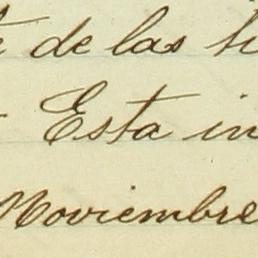 de las
Esta in
Noviembre